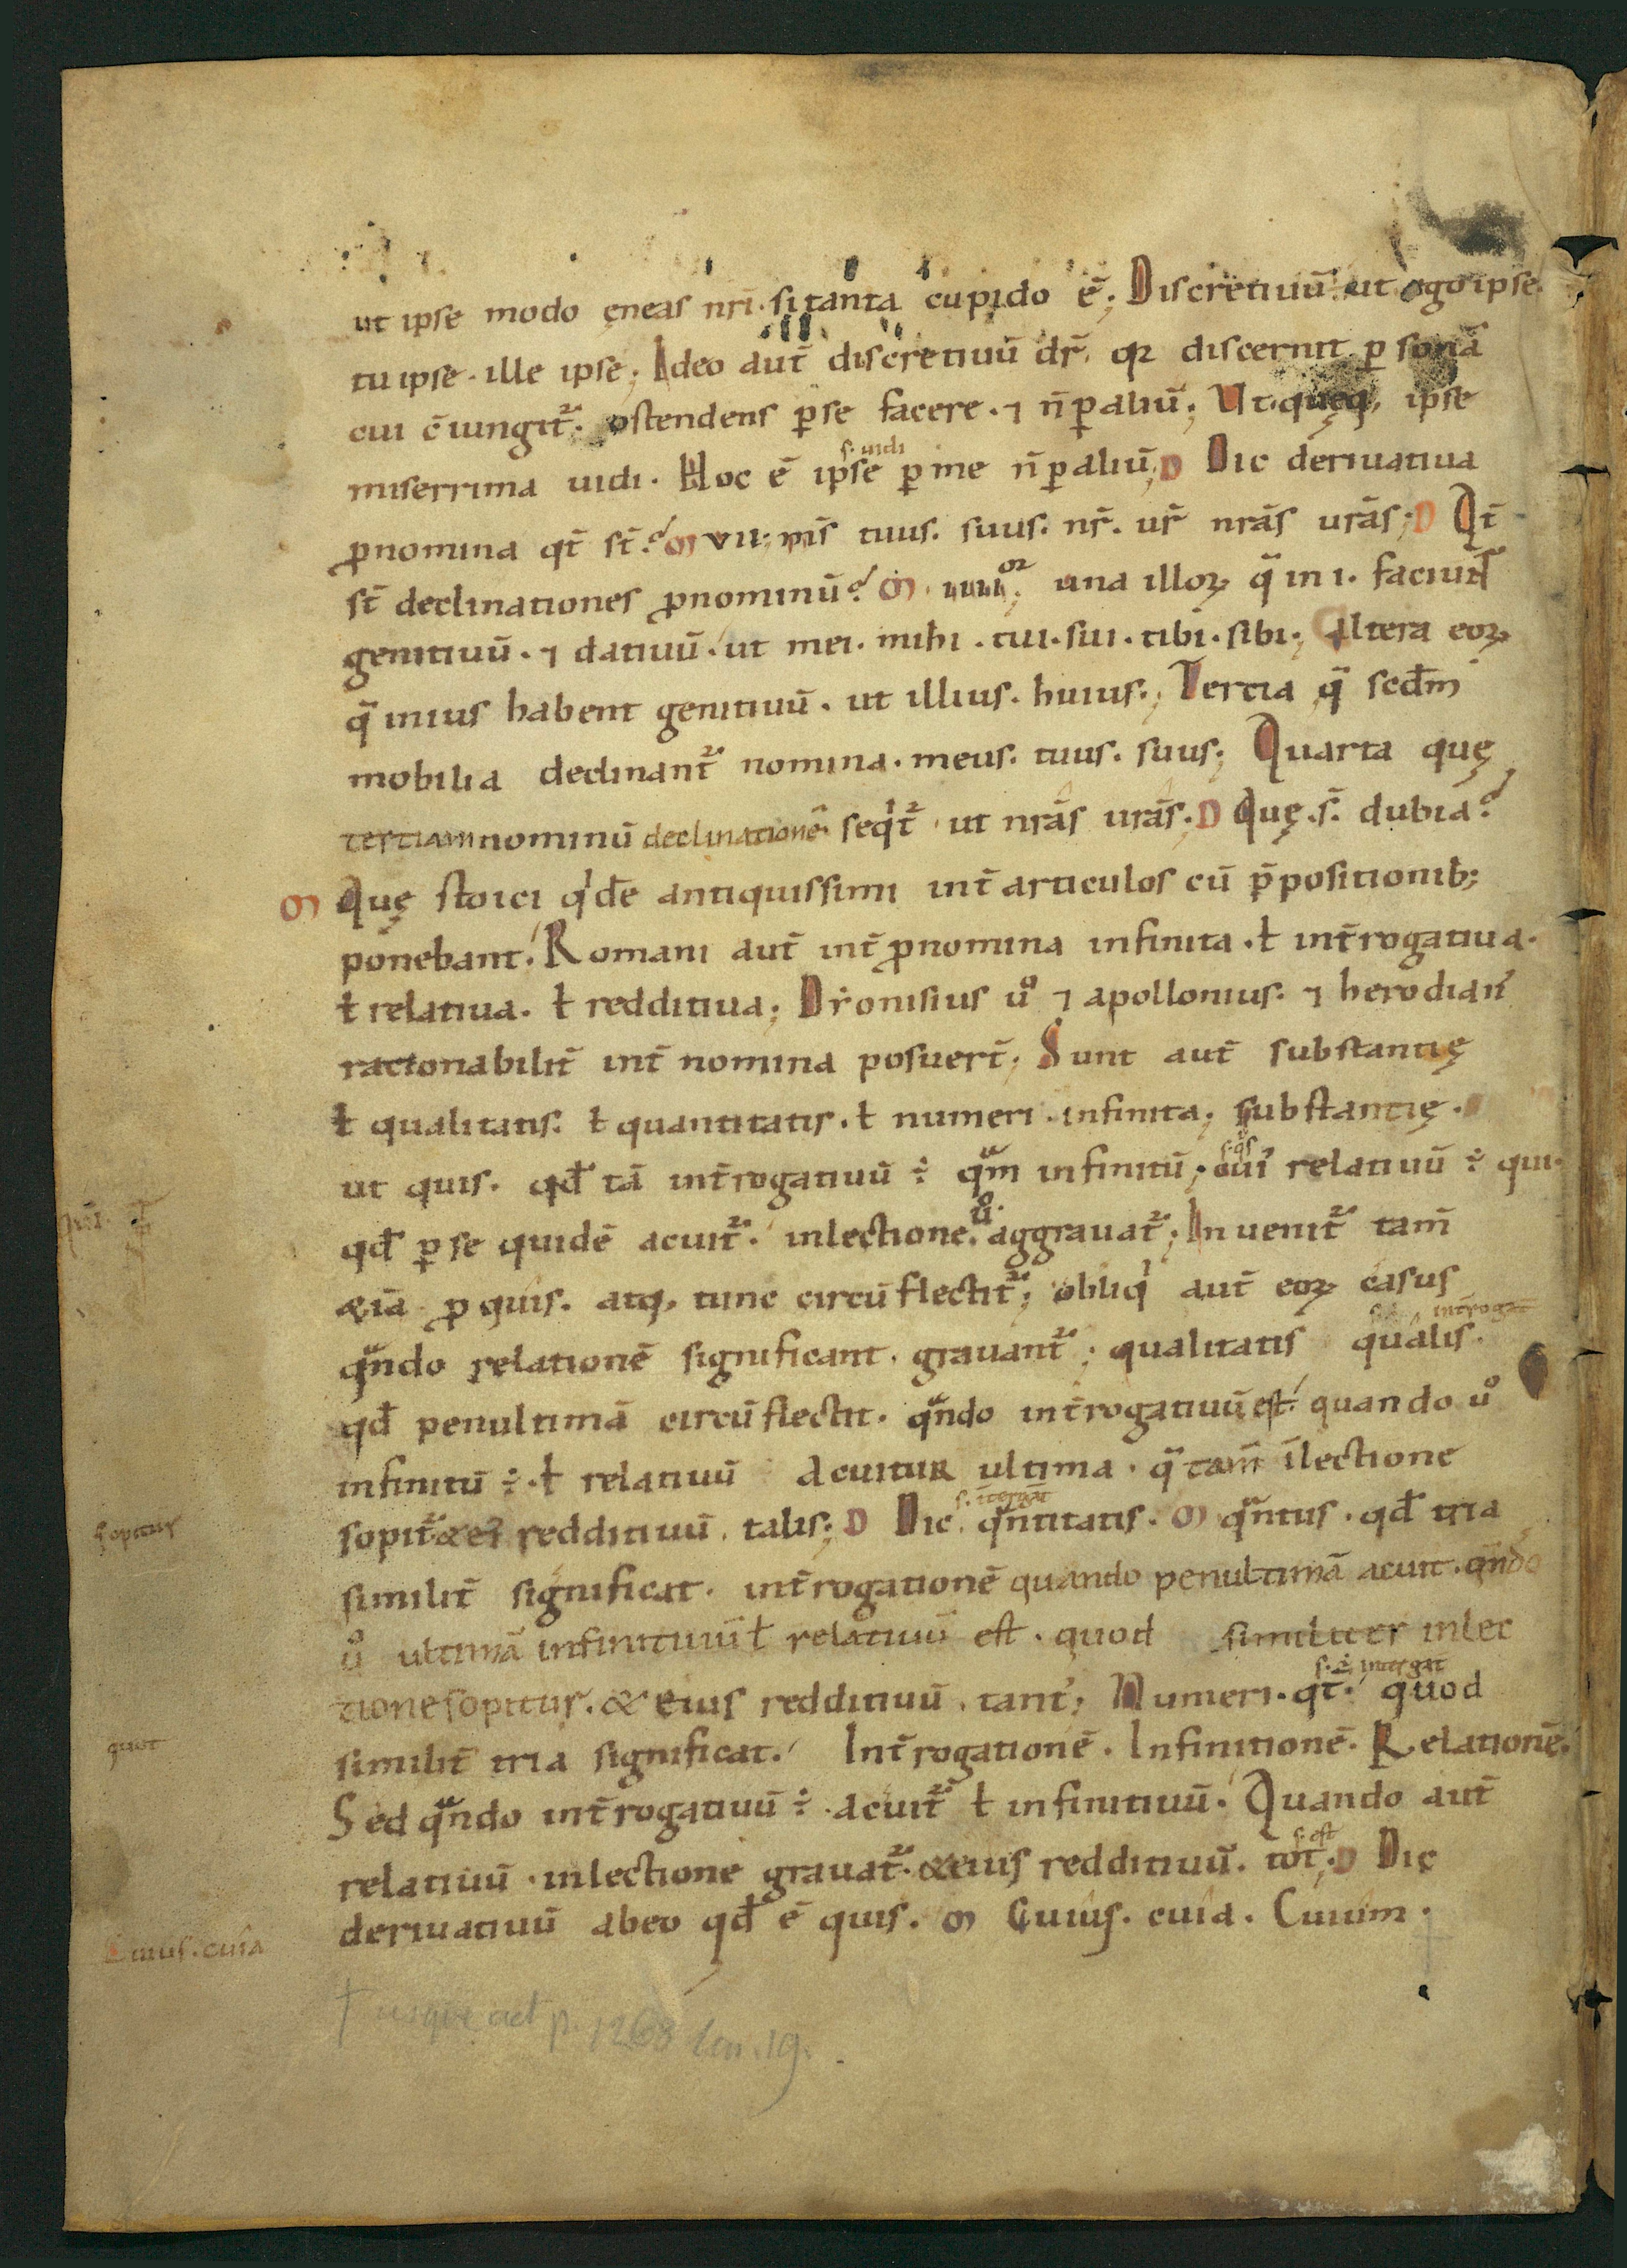 ut ipse modo ęneas nr̄i. si tanta cupido ē; Discretiuū ut ego ipse.
tu ipse. ille ipse; Ideo aut̄ discretiuū dr̄. qꝛ discernit ꝑsonā
cui c̄iungit᷑. ostendens ꝑ se facere. ⁊ n̄ ꝑ aliū; Vt. quęqꝫ ipse
s. uidi
miserrima uidi. Hoc ē ipse ꝑ me n̄ ꝑ aliū; D Dic deriuatiua
ꝓnomina qt̄ st̄? M VII; m̄s tuus. suus. nr̄. ur̄ nrās urās; D Qt̄
st̄ declinationes ꝓnominū? M. IIIIor; una illoꝝ q̄ in i. faciunt
genitiuū. ⁊ datiuū. ut mei. mihi. tui. sui. tibi. sibi; Altera eoꝝ
q̄ in ius habent genitiuū. ut illius. huius; Tertia q̄ scd̄m
mobilia declinant᷑ nomina. meus. tuus. suus; Quarta quę
tertiam nominū declinationē. seqit᷑. ut nrās urās; D Quę. s̄. dubia?
M Quę stoici qide antiquissimi int̄ articulos cū p̄positionib;
ponebant. Romani aut̄ int̄ ꝓnomina infinita. ł int̄rogatiua.
ł relatiua. ł redditiua; Dẏonisius uº ⁊ apollonius. ⁊ herodian᾽
racionabilit̄ int̄ nomina posuert̄; Sunt aut̄ substantię
ł qualitatis. ł quantitatis. ł numeri. infinita; substantię.
s. qs
ut quis. qd̄ tā int̄rogatiuū ÷ qm infinitū; cui᾽ relatiuū ÷ qui.
uº.
qd̄ ꝑ se quidē acuit᷑. in lectione. aggrauat᷑; Inuenit᷑ tam̄
&iā ꝓ quis. atqꝫ tunc circūflectit᷑; obliqi aut̄ eoꝝ casus
int̄rogat̄
qndo relationē significant. grauant᷑; qualitatis quâlis.
qd̄ penultimā circūflectit. qndo int̄rogatiuū est. quando uº
infinitū ÷. ł relatiuū Acuitur ultima. q̄ tam̄ īlectione
sopitur
s. īt̄rgat̄
sopit᷑ & ei᾽ redditiuū. talis; D Dic. qntitatis. M qntus. qd̄ tria
similit̄ significat. int̄rogationē quando penultimā acuit. qndo
uº ultimā infinitiuū ł relatiuū est. quod similiter in lec
s. ē; int̄rgat
tione sopitur. & eius redditiuū. tant᾽; Numeri. qt̄. quod
quot
similit̄ tria significat. Int̄rogationē. Infinitionē. Relationē.
Sed qndo int̄rogatiuū ÷. acuit᷑ ł infinitiuū. Quando aut̄
s. est
relatiuū. in lectione grauat᷑. & eius redditiuū. tot; D Dic
deriuatiuū ab eo qd̄ ē quis. M Cuiûs. cuîa. Cuiûm.
Cuius. cuîa
† usque ad p. 1268 lin. 19.